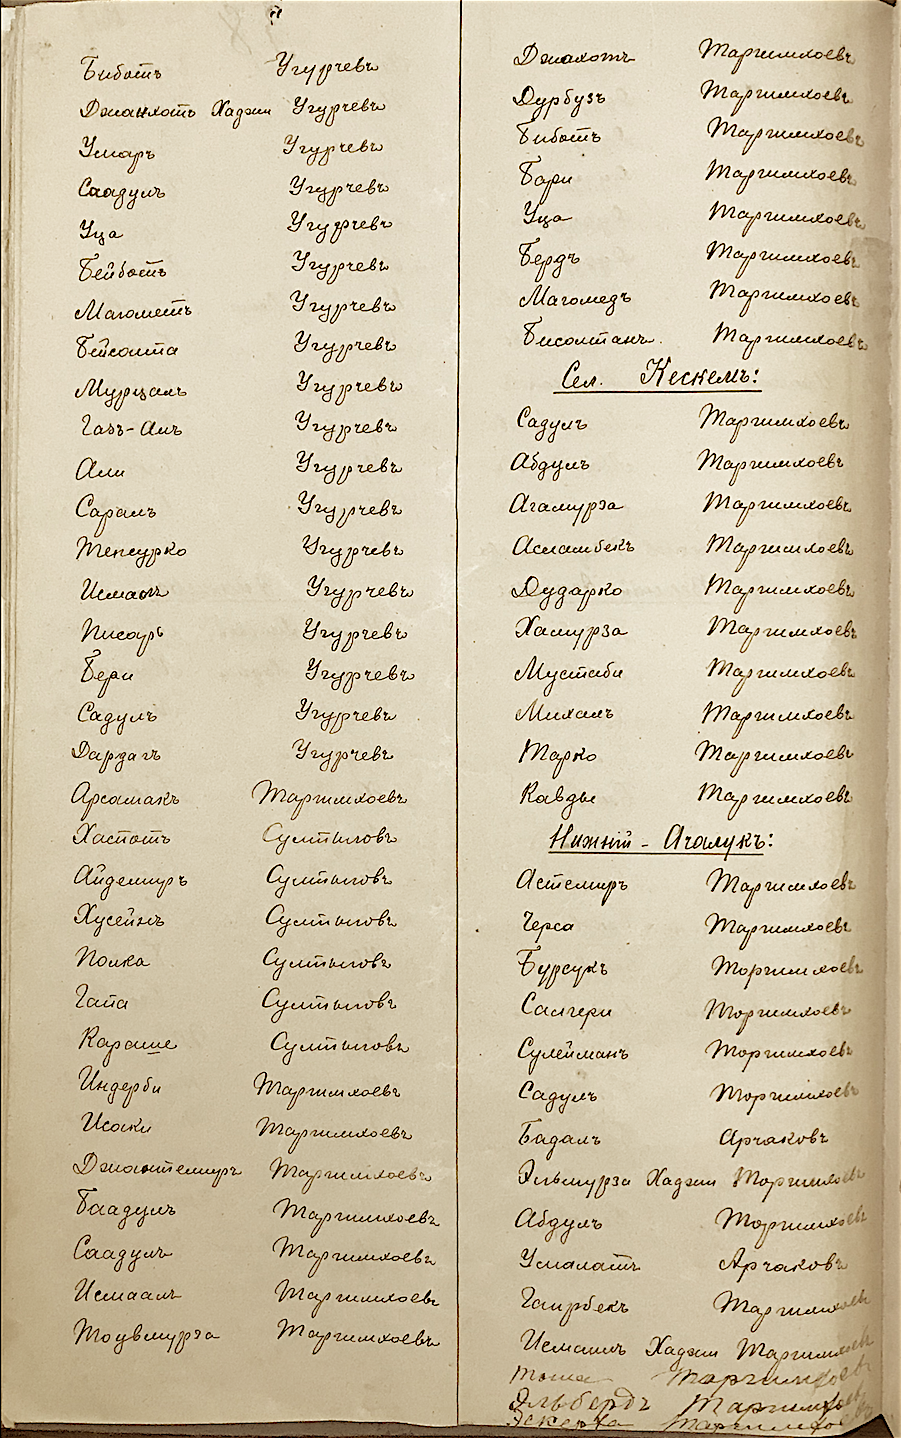 Биботъ Угурчевъ
Джанхотъ Хаджи Угурчевъ
Умаръ Угурчевъ
Саадулъ Угурчевъ
Уца Угурчевъ
Бейботъ Угурчевъ
Магометъ Угурчевъ
Бейсолта Угурчевъ
Мурцалъ Угурчевъ
Газъ-Алъ Угурчевъ
Али Угурчевъ
Саралъ Угурчевъ
Темурко Угурчевъ
Исмаилъ Угурчевъ
Инсаръ Угурчевъ
Бери Угурчевъ
Садулъ Угурчевъ
Дардагъ Угурчевъ
Арсамакъ Таргимхоевъ
Хастотъ Султыговъ
Айдемиръ Султыговъ
Хусейнъ Султыговъ
Полка Султыговъ
Гата Султыговъ
Караше Султыговъ
Индерби Таргимхоевъ
Исаки Таргимхоевъ
Джантемиръ Таргимхоевъ
Баадулъ Таргимхоевъ
Саадулъ Таргимхоевъ
Исмаалъ Таргимхоевъ
Товмурза Таргимхоевъ
Джахотъ Таргимхоевъ
Дурбузъ Таргимхоевъ
Биботъ Таргимхоевъ
Бари Таргимхоевъ
Уца Таргимхоевъ
Бердъ Таргимхоевъ
Магомедъ Таргимхоевъ
Бисолтанъ Таргимхоевъ
Сел. Кескемъ:
Садулъ Таргимхоевъ
Абдулъ Таргимхоевъ
Агамурза Таргимхоевъ
Асламбекъ Таргимхоевъ
Дударко Таргимхоевъ
Хамурза Таргимхоевъ
Мустаби Таргимхоевъ
Михалъ Таргимхоевъ
Тарко Таргимхоевъ
Кавды Таргимхоевъ
Нижній - Ачалукъ:
Астемиръ Таргимхоевъ
Черса Таргимхоевъ
Бурсукъ Таргимхоевъ
Саигери Таргимхоевъ
Сулейманъ Таргимхоевъ
Садулъ Таргимхоевъ
Бадалъ Арчаковъ
Эльмурза Хаджи Таргимхоевъ
Абдулъ Таргимхоевъ
Умалатъ Арчаковъ
Гаирбекъ Таргимхоевъ
Исмаилъ Хаджи Таргимхоевъ
Таргимхоевъ
Эльбердъ Таргимхоевъ
Эскерха Таргимхоевъ